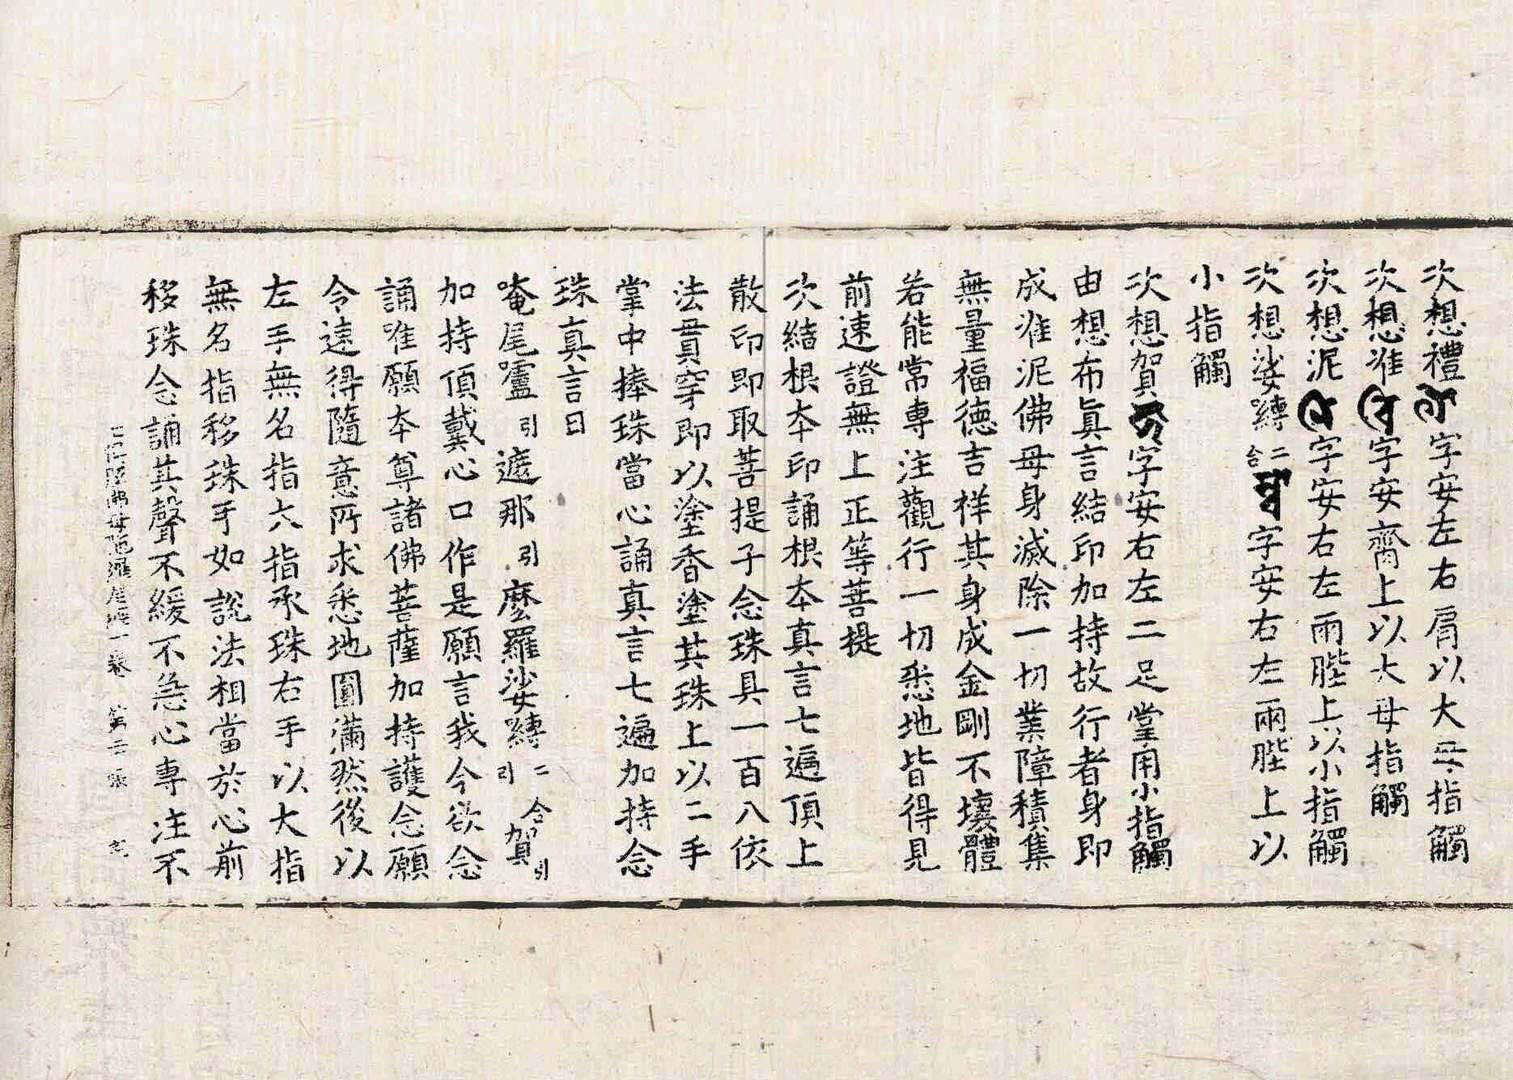 次想禮字安左右肩以大母指觸
次想准字安齊上以大母指觸
次想泥字安右左兩䏶上以小指觸
次想娑嚩二合字安右左兩䏶上以
小指觸
次想賀字安右左二足掌用小指觸
由想布真言結印加持故行者身即
成准泥佛母身滅除一切業障積集
無量福德吉祥其身成金剛不壞體
若能常專注觀行一切悉地皆得見
前速證無上正等菩提
次結根本印誦根本真言七遍頂上
散印即取菩提子念珠具一百八依
法貫穿即以塗香塗其珠上以二手
掌中捧珠當心誦真言七遍加持念
珠真言曰
唵尾嚧引遮那引麼羅娑嚩二合引賀引
加持頂戴心口作是願言我今欲念
誦唯願本尊諸佛菩薩加持護念願
令速得隨意所求悉地圓滿然後以
左手無名指大指承珠右手以大指
無名指移珠手如說法相當於心前
移珠念誦其聲不緩不急心專注不
佛母陁羅尼經一卷 第三張